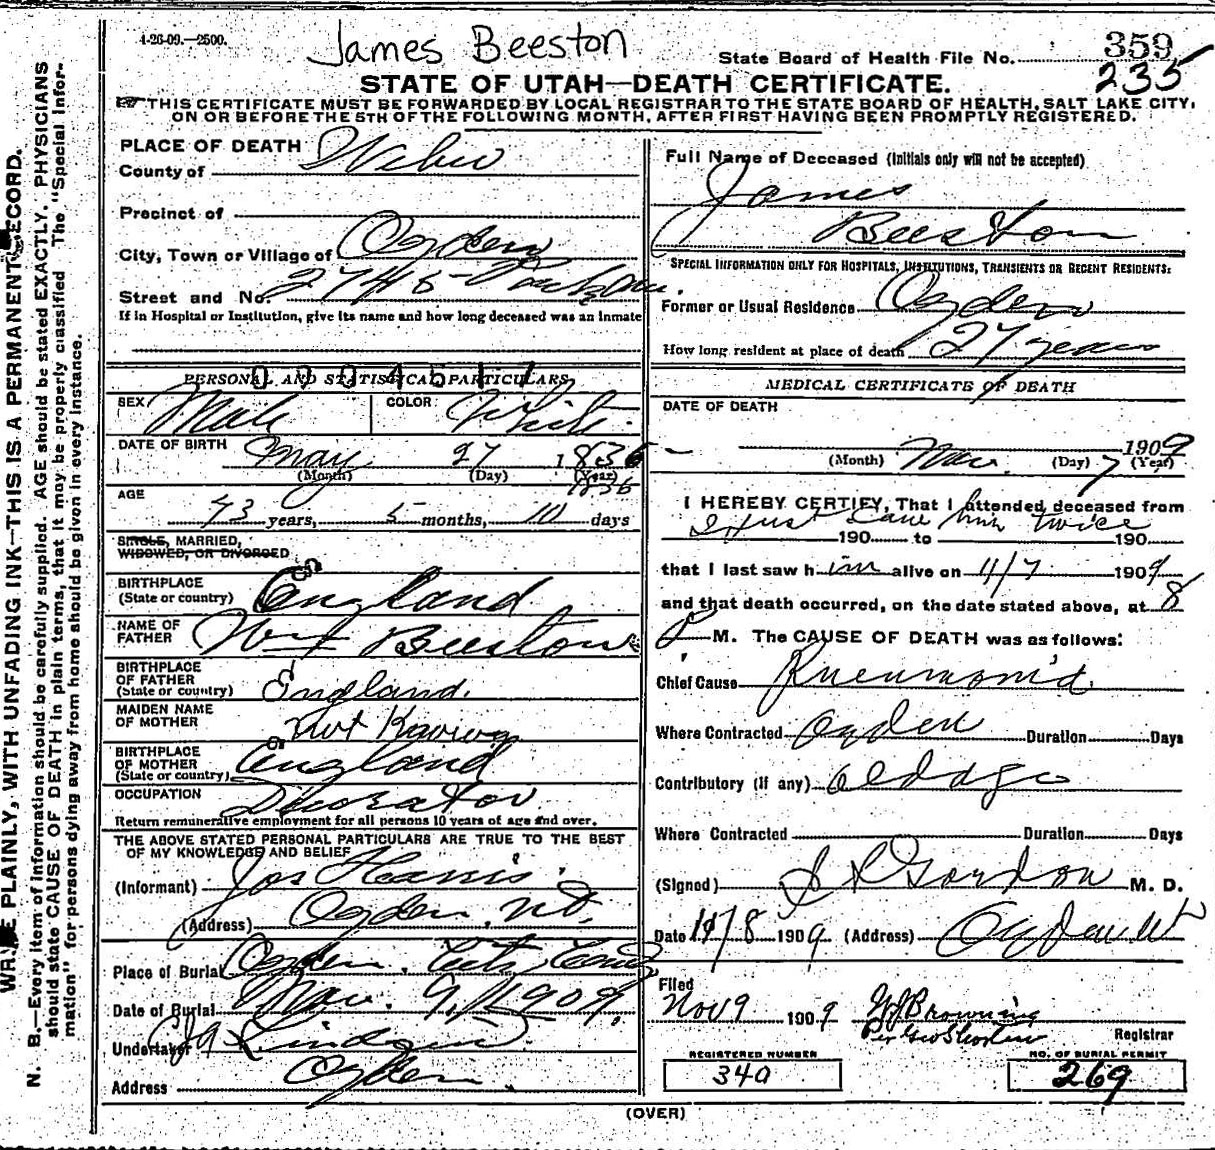 4-26-09.—2500.
James Beeston
State Board of Health File No. 359
235
STATE OF UTAH—DEATH CERTIFICATE.
THIS CERTIFICATE MUST BE FORWARDED BY LOCAL REGISTRAR TO THE STATE BOARD OF HEALTH, SALT LAKE CITY,
ON OR BEFORE THE 5TH OF THE FOLLOWING MONTH, AFTER FIRST HAVING BEEN PROMPTLY REGISTERED.
PLACE OF DEATH
County of Weber
Precinct of
City, Town or Village of Ogden
Street and No. 2745
If in Hospital or Institution, give its name and how long deceased was an inmate
PERSONAL AND STATISTICAL PARTICULARS
SEX Male COLOR White
DATE OF BIRTH May 27 1836
(Month) (Day) (Year)
1836
AGE
73 years, 5 months, 10 days
SINGLE, MARRIED,
WIDOWED, OR DIVORCED
BIRTHPLACE
(State or country) England
NAME OF
FATHER Wm Beeston
BIRTHPLACE
OF FATHER
(State or country) England.
MAIDEN NAME
OF MOTHER Not Known
BIRTHPLACE
OF MOTHER
(State or country) England
OCCUPATION
Return remunerative employment for all persons 10 years of age and over.
THE ABOVE STATED PERSONAL PARTICULARS ARE TRUE TO THE BEST
OF MY KNOWLEDGE AND BELIEF
(Informant) Jos Harris
(Address) Ogden, Ut.
Place of Burial Ogden City Cem
Date of Burial Nov. 9, 1909.
Undertaker Lindquist
Address Ogden
Full Name of Deceased (Initials only will not be accepted)
James
Beeston
SPECIAL INFORMATION ONLY FOR HOSPITALS, INSTITUTIONS, TRANSIENTS OR RECENT RESIDENTS:
Former or Usual Residence Ogden
How long resident at place of death 27 years
MEDICAL CERTIFICATE OF DEATH
DATE OF DEATH
1909
(Month) Nov. (Day) 7 (Year)
I HEREBY CERTIFY, That I attended deceased from
I just saw him twice
190 to 190
that I last saw him alive on 11/7 1909
and that death occurred, on the date stated above, at 8
P M. The CAUSE OF DEATH was as follows:
Chief Cause Pneumonia
Where Contracted Ogden Duration Days
Contributory (if any) old age
Where Contracted Duration Days
(Signed) Gordon M. D.
Date 11/8 1909 (Address) Ogden Ut
Filed
Nov 9 1909 Browning
Per Geo Shorten
Registrar
REGISTERED NUMBER
340
NO. OF BURIAL PERMIT
269
(OVER)
WRITE PLAINLY, WITH UNFADING INK—THIS IS A PERMANENT RECORD.
N. B.—Every item of information should be carefully supplied. AGE should be stated EXACTLY. PHYSICIANS
should state CAUSE OF DEATH in plain terms, that it may be properly classified. The "Special Infor-
mation" for persons dying away from home should be given in every instance.